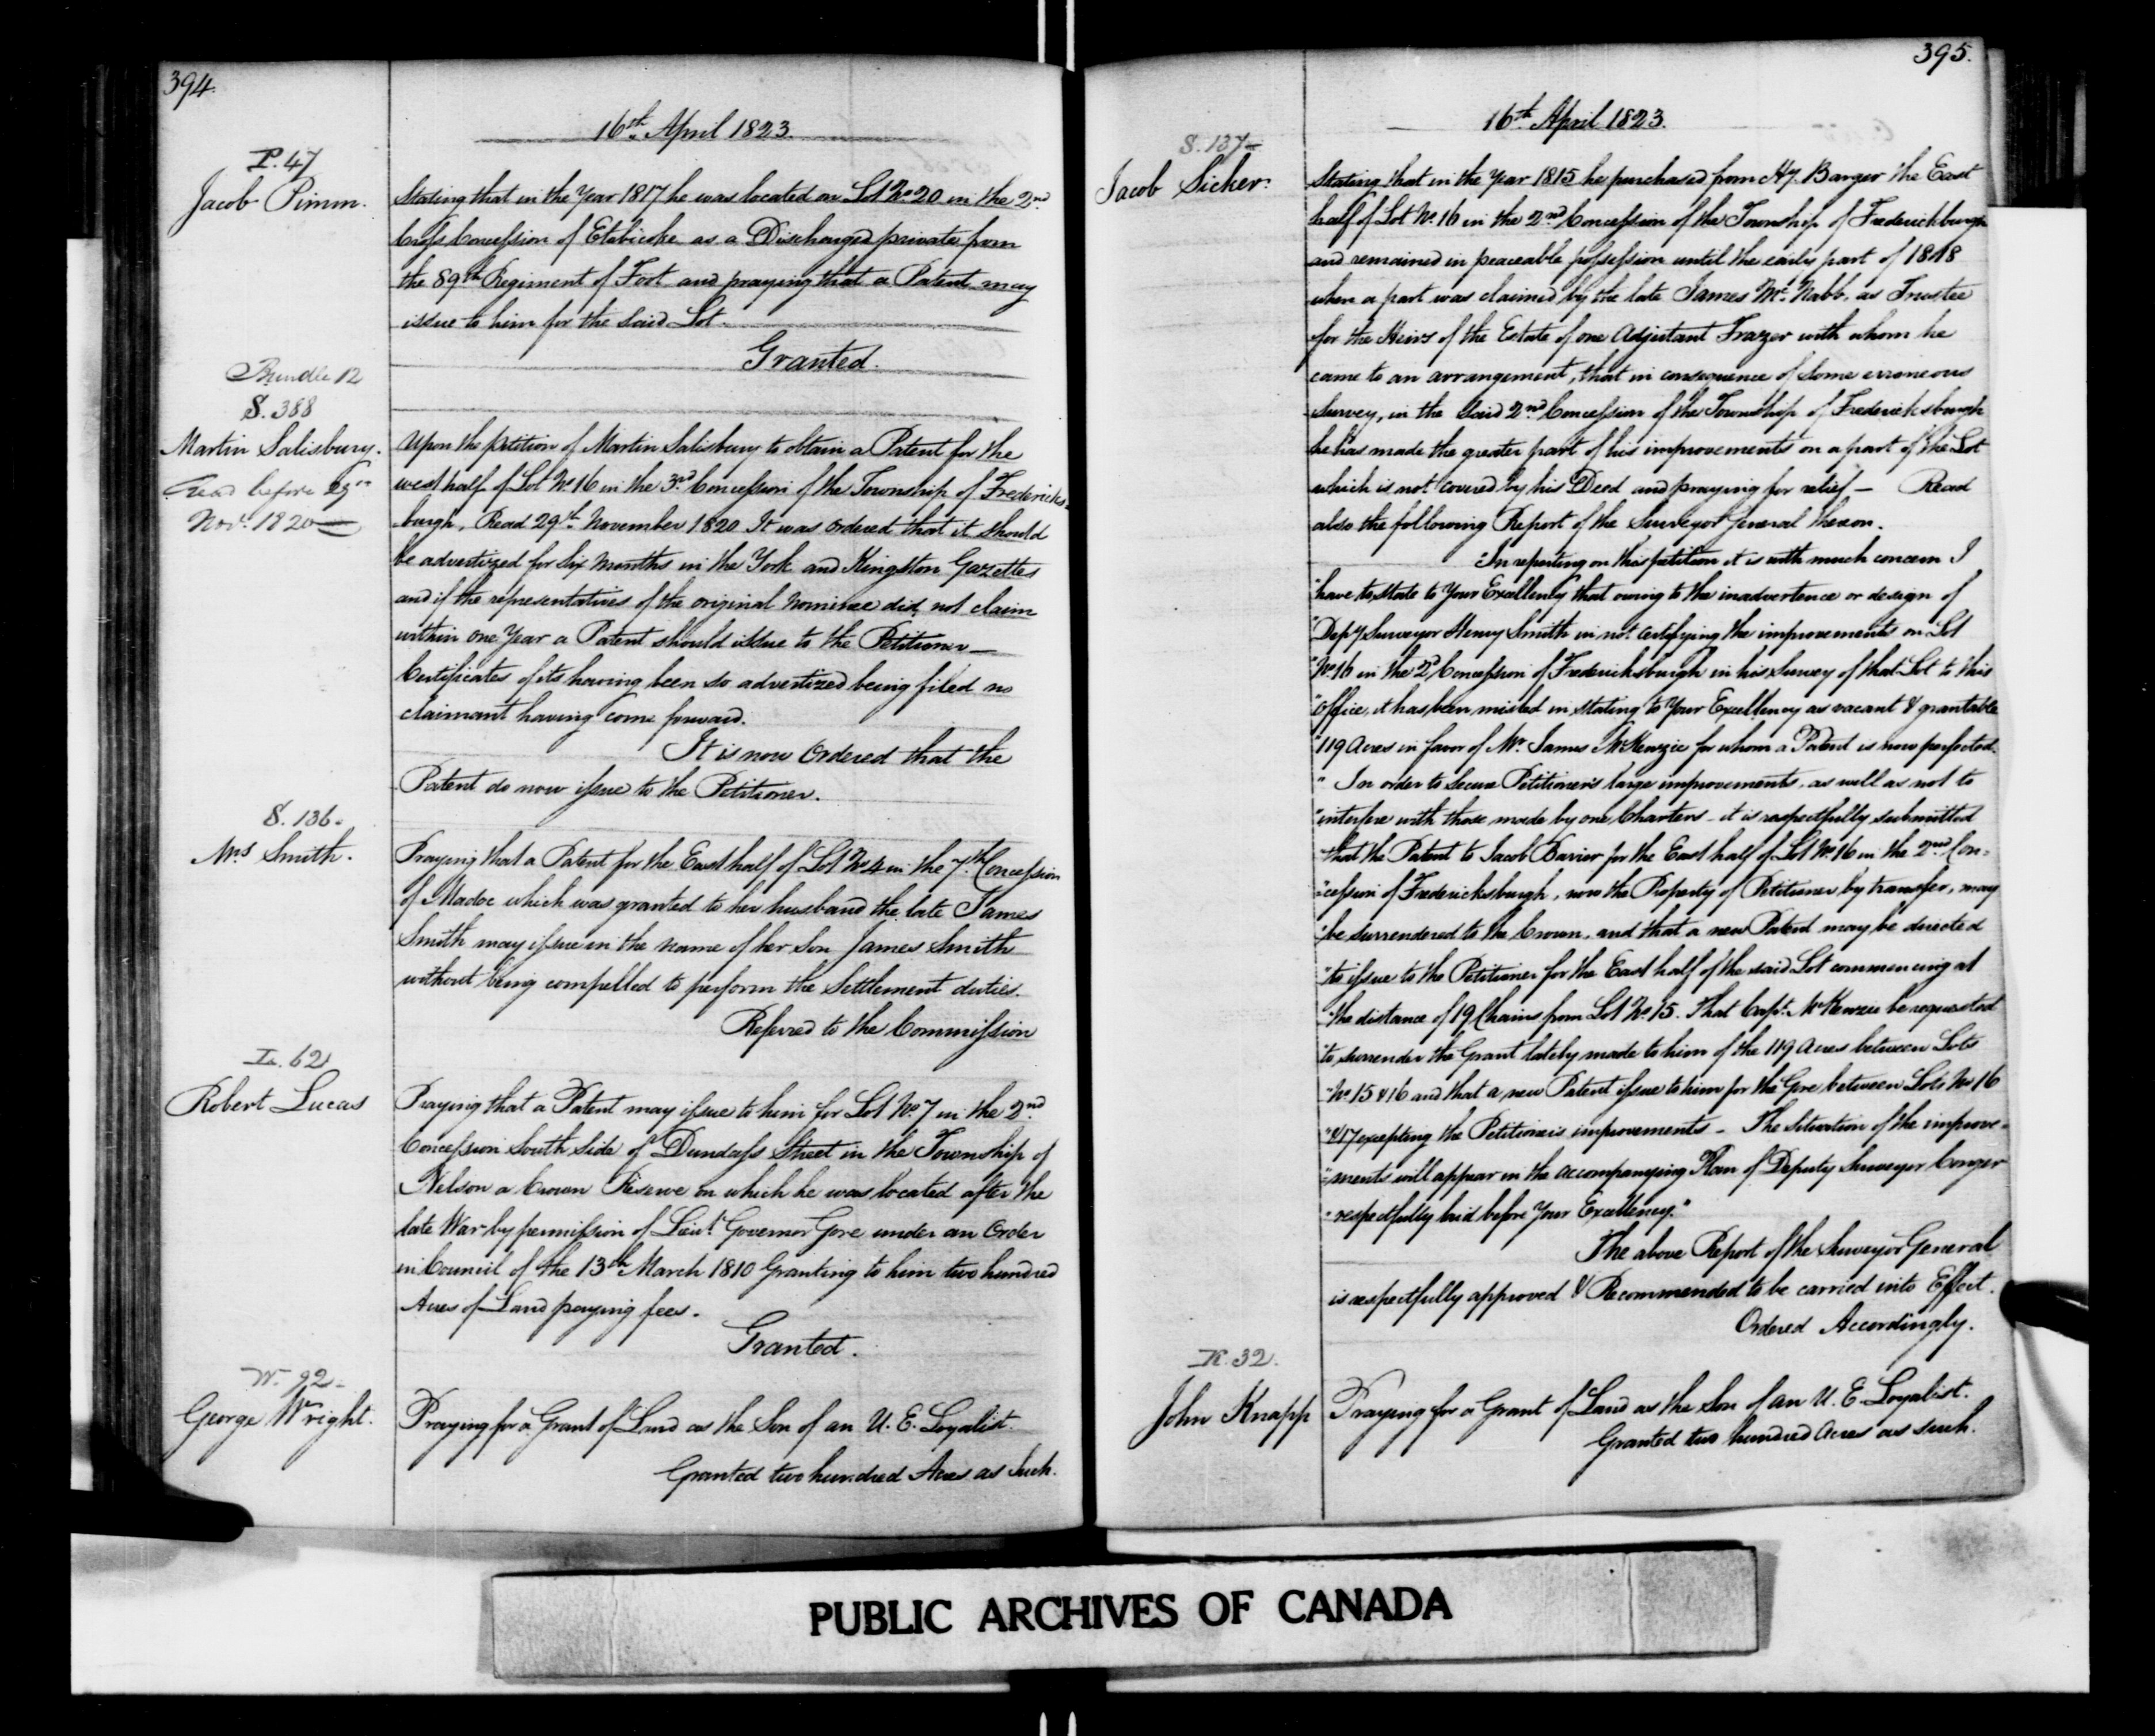 394.
16th April 1823.
P. 47
Jacob Pimm.
Stating that in the Year 1817 he was located on Lot No 20 in the 2nd
Cross Concession of Etobicoke as a Discharged private from
the 89th Regiment of Foot and praying that a Patent may
issue to him for the said Lot.
Granted.
Bundle 12
S. 388
Martin Salisbury.
read before 29th
Novr. 1820
Upon the Petition of Martin Salisbury to obtain a Patent for the
west half of Lot No 16 in the 3rd Concession of the Township of Fredericks-
burgh, Read 29th November 1820 It was ordered that it should
be advertized for six Months in the York and Kingston Gazettes
and if the representatives of the original Nominee did not claim
within one Year a Patent should issue to the Petitioner—
Certificates of its having been so advertized being filed no
claimant having come forward.
It is now Ordered that the
Patent do now issue to the Petitioner.
S. 136.
Mrs Smith.
Praying that a Patent for the East half of Lot No 4 in the 7th Concession
of Madoc which was granted to her husband the late James
Smith may issue in the name of her Son James Smith
without being compelled to perform the Settlement duties.
Referred to the Commission
L. 62
Robert Lucas
Praying that a Patent may issue to him for Lot No 7 in the 2nd
Concession South Side of Dundass Street in the Township of
Nelson a Crown Reserve on which he was located after the
late War by permission of Lieut. Governor Gore under an Order
in Council of the 13th March 1810 Granting to him two hundred
Acres of Land paying fees.
Granted.
W. 92
George Wright.
Praying for a Grant of Land as the Son of an U. E. Loyalist.
Granted two hundred Acres as Such.
395.
16th April 1823.
S. 137
Jacob Sicker.
Stating that in the Year 1815 he purchased from Hy. Barger the East
half of Lot No. 16 in the 2nd Concession of the Township of Frederickburgh
and remained in peaceable possession until the early part of 1818
when a part was claimed by the late James Mc.Nabb, as Trustee
for the Heirs of the Estate of one Adjutant Frazer with whom he
came to an arrangement, that in consequence of some erroneous
Survey, in the said 2nd Concession of the Township of Fredericksburgh
he has made the greater part of his improvements on a part of the Lot
which is not covered by his Deed and praying for relief — Read
also the following Report of the Surveyor General thereon.
"In reporting on this petition it is with much concern I
"have to state to Your Excellency that owing to the inadvertence or design of
"Depy Surveyor Henry Smith in not certifying the improvements on Lot
"No 16 in the 2d Concession of Fredericksburgh in his Survey of that Lot to this
"Office, it has been misled in stating to Your Excellency as vacant & grantable
"119 Acres in favor of Mr. James McKenzie for whom a Patent is now perfected.
" In order to secure Petitioner's large improvements, as well as not to
"interfere with those made by one Charters – it is respectfully submitted
"that the Patent to Jacob Barier for the East half of Lot No. 16 in the 2nd Con-
"cession of Fredericksburgh, now the Property of Petitioner by transfer, may
"be surrendered to the Crown, and that a new Patent may be directed
"to issue to the Petitioner for the East half of the said Lot commencing at
"the distance of 19 Chains from Lot No. 15. That Capt. McKenzie be requested
"to surrender the Grant lately made to him of the 119 Acres between Lots
"No. 15 & 16 and that a new Patent issue to him for the Gore between Lots No 16
"& 17 excepting the Petitioners improvements – The Situation of the improve-
"ments will appear in the accompanying Plan of Deputy Surveyor Conger
"respectfully laid before Your Excellency."
The above Report of the Surveyor General
is respectfully approved & Recommended to be carried into Effect.
Ordered Accordingly.
K. 32.
John Knapp
Praying for a Grant of Land as the Son of an U. E. Loyalist.
Granted two hundred Acres as such.
PUBLIC ARCHIVES OF CANADA